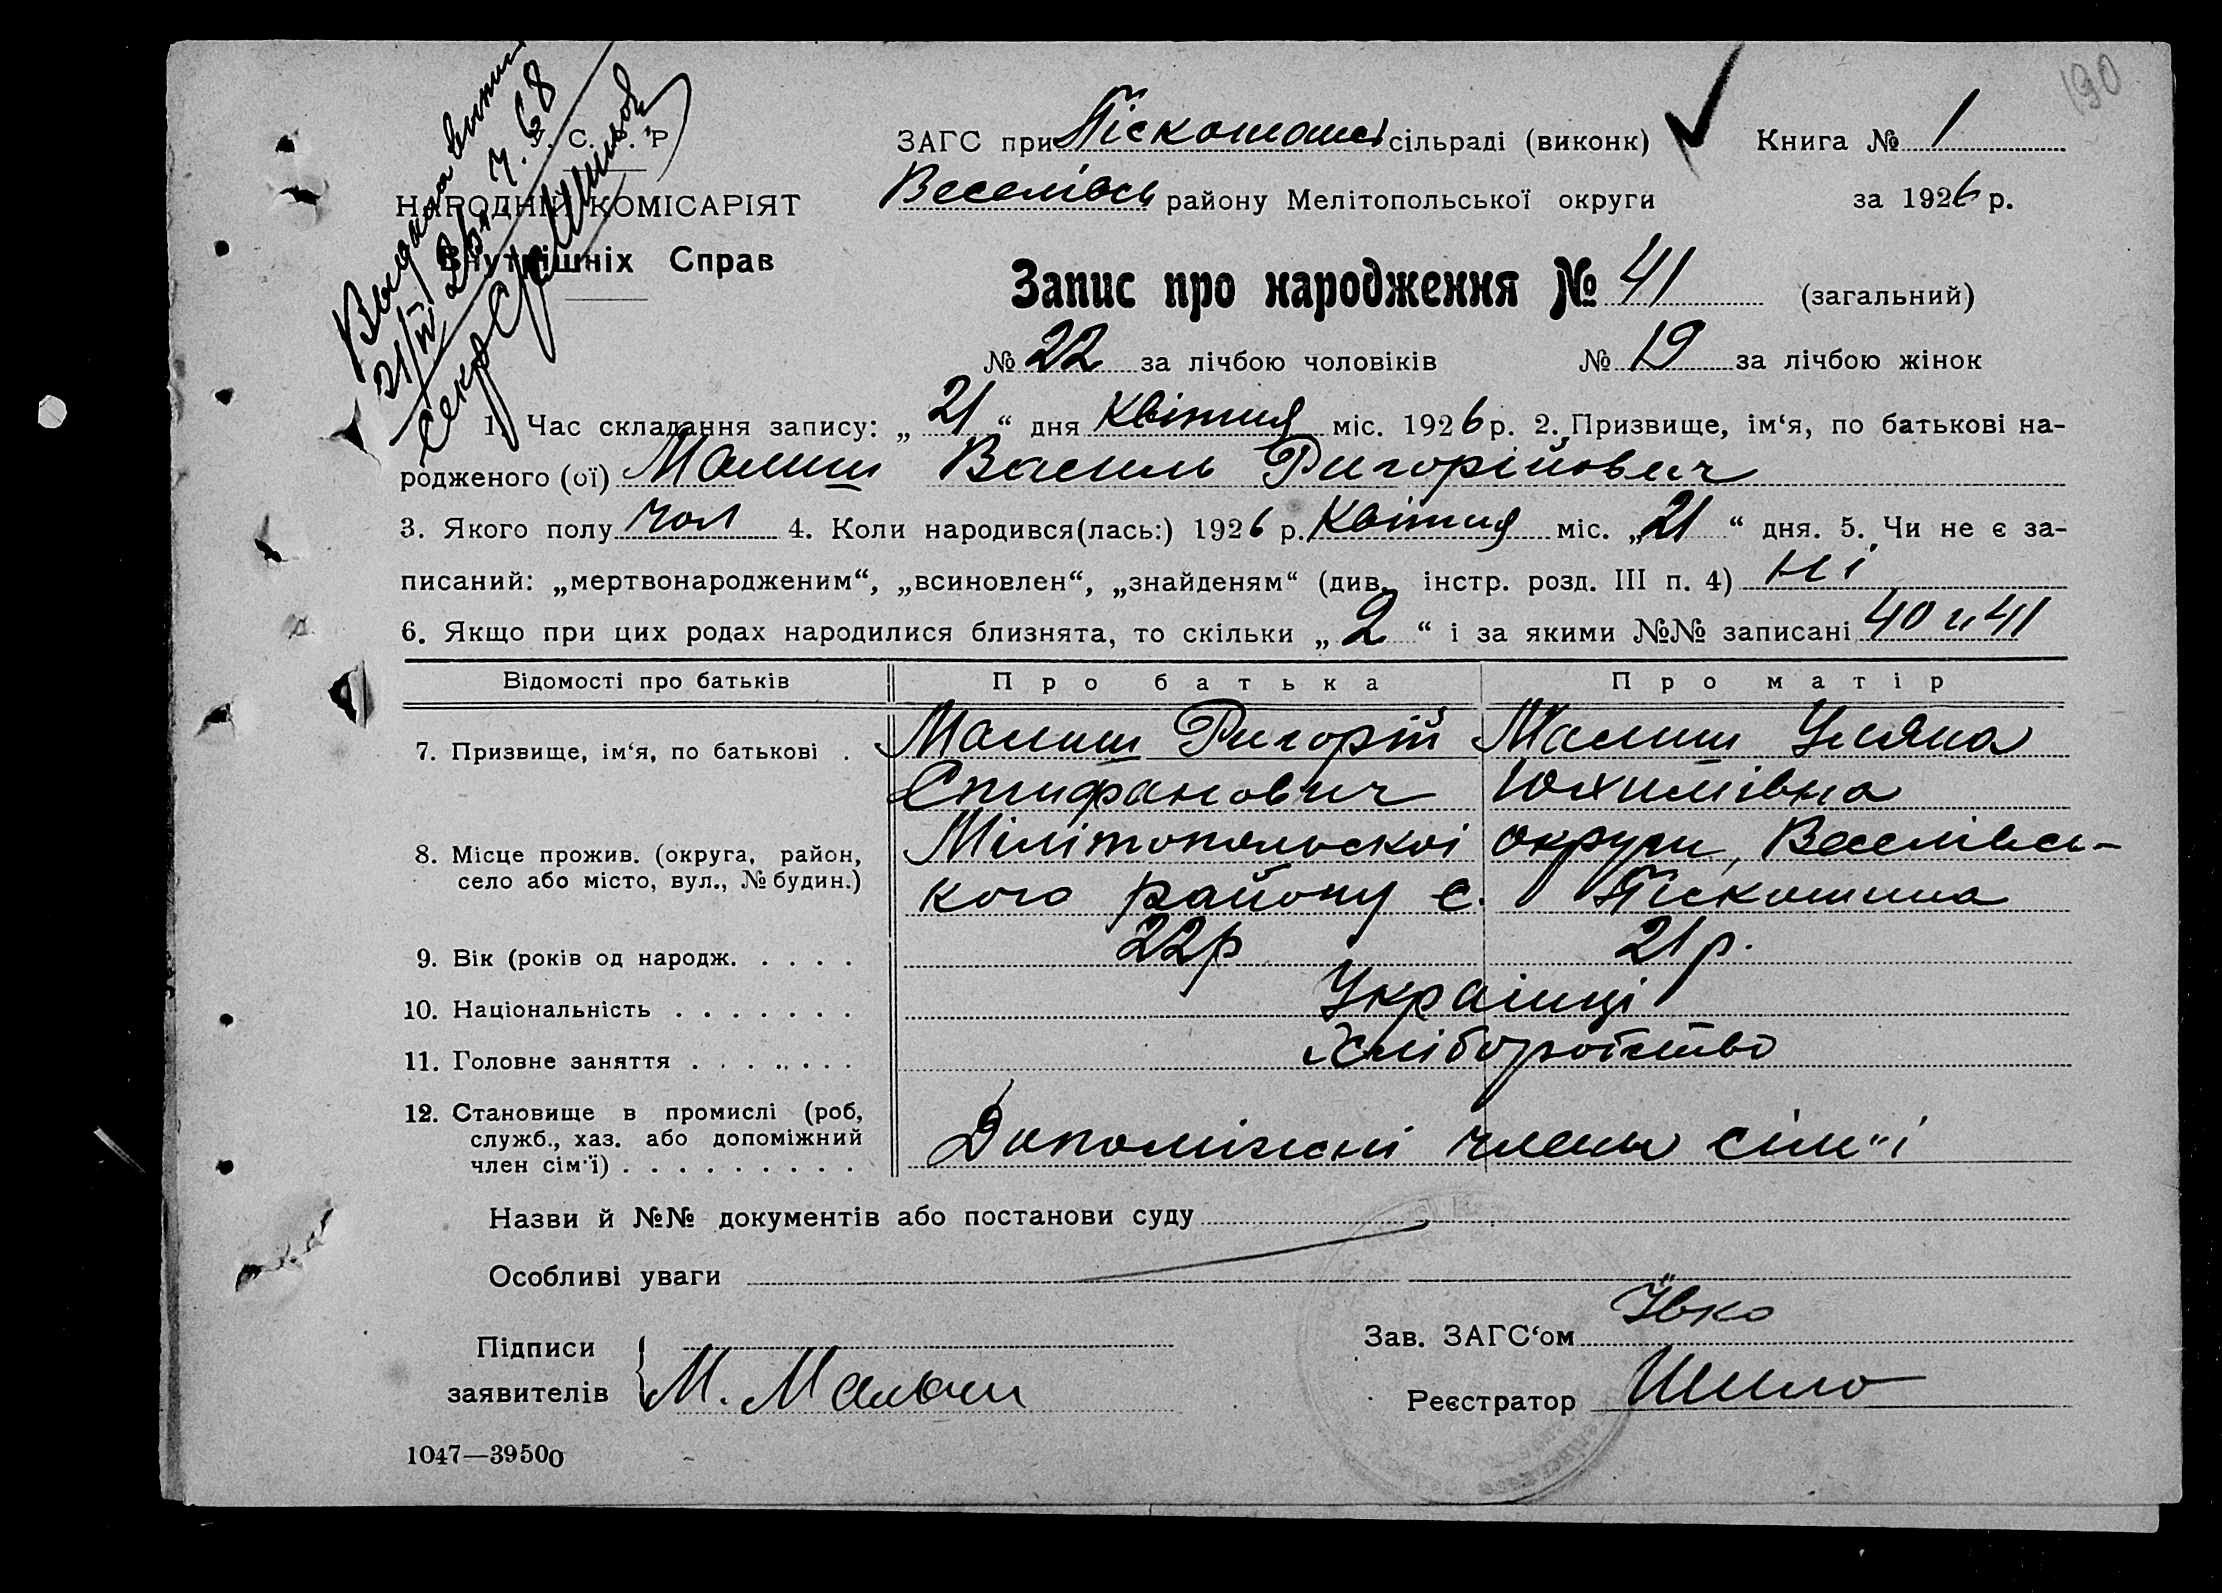 190
Выдана
21/IV 68
У. С. Р. Р.
НАРОДНІЙ КОМІСАРІЯТ
Внутрішніх Справ
ЗАГС при Піскошин сільраді (виконк) Книга № 1
Веселівськ району Мелітопольської округи за 1926 р.
Запис про народження № 41 (загальний)
№ 22 за лічбою чоловіків № 19 за лічбою жінок
1. Час складання запису: „21“ дня Квітня міс. 1926 р. 2. Призвище, ім‘я, по батькові на-
родженого (ої) Малиш Василь Григорійович
3. Якого полу чол 4. Коли народився(лась:) 1926 р. Квітня міс. „21“ дня. 5. Чи не є за-
писаний: „мертвонародженим“, „всиновлен“, „знайденям“ (див. інстр. розд. III п. 4) Ні
6. Якщо при цих родах народилися близнята, то скільки „2“ і за якими №№ записані 40 и 41
Відомості про батьків Про батька Про матір
7. Призвище, ім‘я, по батькові . Малиш Григорій Малиш Уляна
Епифанович Юхимівна
8. Місце прожив. (округа, район, Мілітопольскоі округи, Веселівсь-
село або місто, вул., № будин.) кого району с. Піскошина
9. Вік (років од народж. . . . . 22р 21р.
10. Національність . . . . . . . Украінці
11. Головне заняття . . . . . . . Хліборобство
12. Становище в промислі (роб,
служб., хаз. або допоміжний Допоміжні члены сім"і
член сім‘ї) . . . . . . . . .
Назви й №№ документів або постанови суду
Особливі уваги
Підписи Зав. ЗАГС‘ом Івко
заявителів М. Малыш Реєстратор Шило
1047—39500